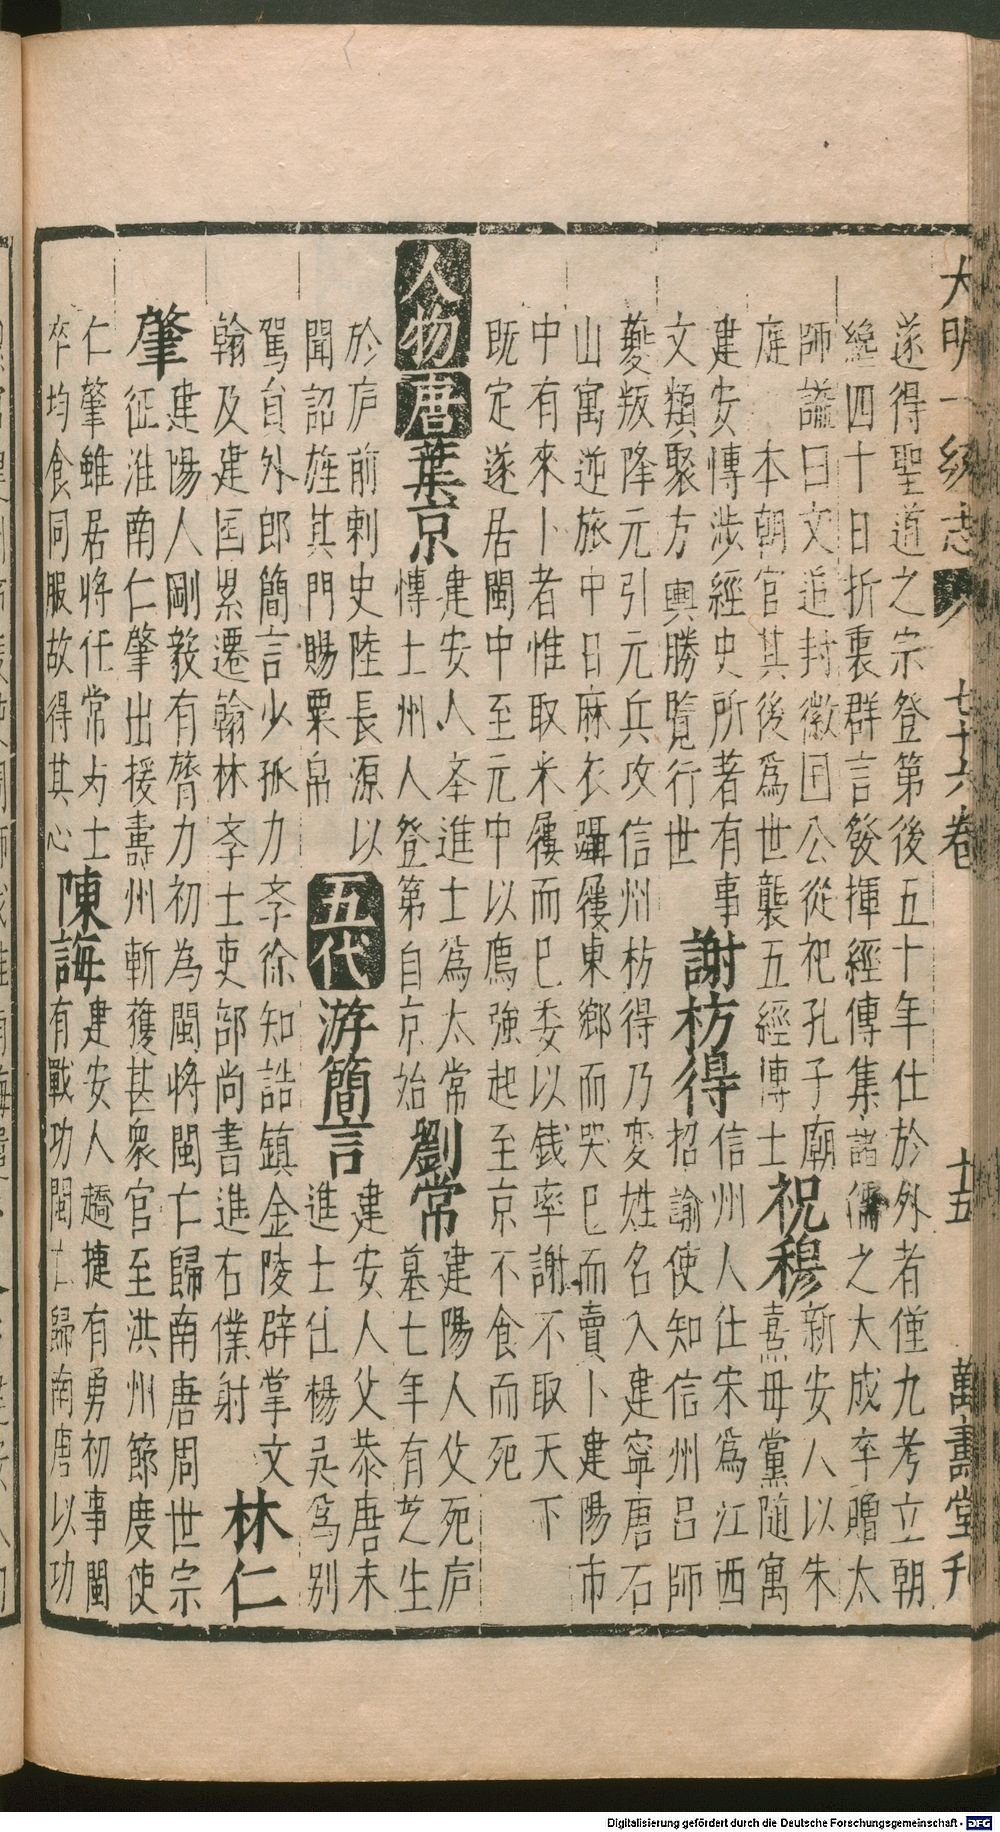 大明一統志 七十六卷 十五 萬壽堂刊
遂得聖道之宗登第後五十年仕於外者僅九考立朝
纔四十日折衷群言發揮經傳集諸儒之大成卒贈太
師諡曰文追封徽囯公從祀孔子廟
庭 本朝官其後為世襲五經博士
祝穆
新安人以朱
熹母黨隨寓
建安愽涉經史所著有事
文類聚方輿勝覽行世
謝枋得
信州人仕宋為江西
招諭使知信州呂師
夔叛降元引元兵攻信州枋得乃変姓名入建寧唐石
山寓逆旅中日麻衣躡屨東鄉而哭巳而賣卜建陽市
中有來卜者惟取米屨而巳委以錢率謝不取天下
既定遂居閩中至元中以薦強起至京不食而死
人物 唐 葉京
建安人夲進士為太常
愽士州人登第自京始
劉常
建陽人父死庐
墓七年有芝生
於庐前刺史陸長源以
聞詔旌其門賜粟帛
五代 游簡言
建安人父恭唐末
進士仕楊吳為別
駕自外郎簡言少孤力斈徐知誥鎮金陵辟掌文
翰及建囯累遷翰林斈士吏部尚書進右僕射
林仁
肇
建陽人剛毅有膂力初為閩將閩亡歸南唐周世宗
征淮南仁肇出援壽州斬獲甚衆官至洪州節度使
仁肇雖居將任常为士
卒均食同服故得其心
陳誨
建安人趫捷有勇初事閩
有戰功閩亡歸南唐以功
Digitalisierung gefördert durch die Deutsche Forschungsgemeinschaft - DFG